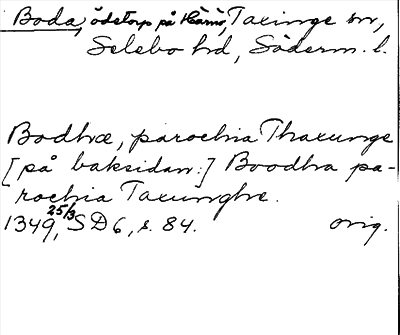 Boda, ödetorp på Härnö, Taxinge sn,
Selebo hd, Söderm. l.
Bodhræ, parochia Thaxunge
[på baksidan:] Boodhra pa-
rochia Taxunghe.
1349 25/3, SD6, s. 84. orig.